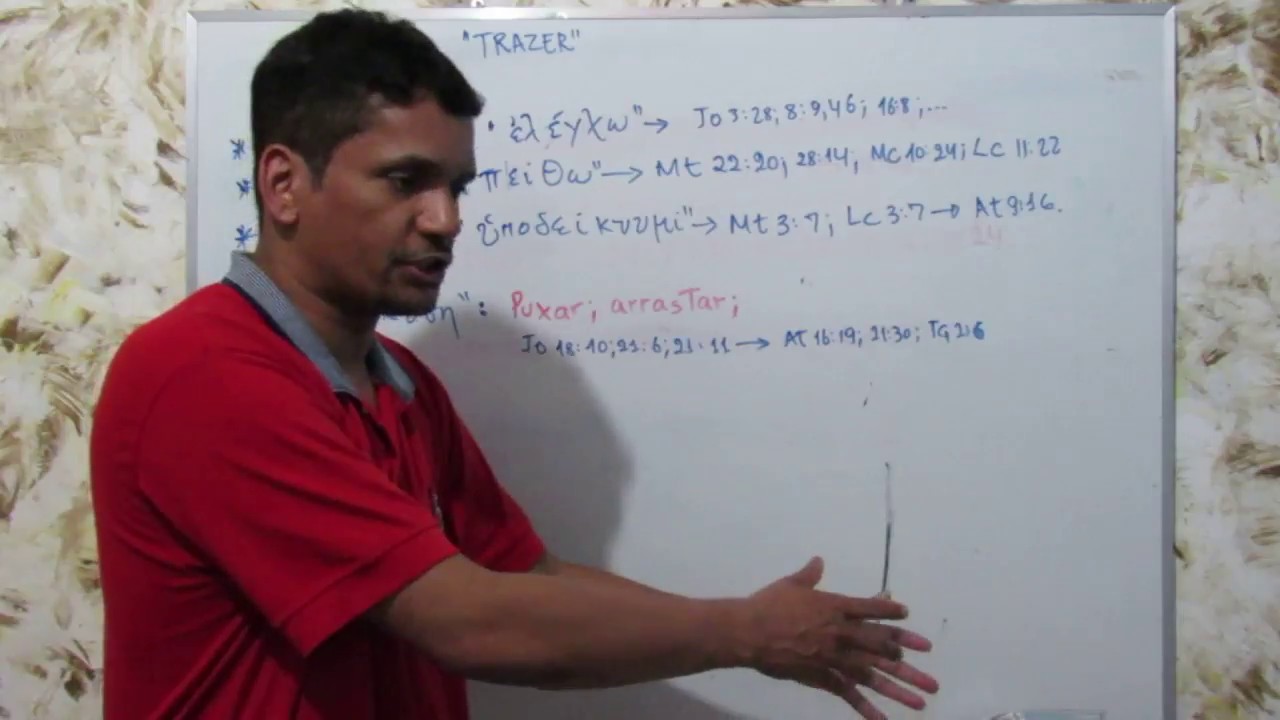 "TRAZER"
* • ἐλέγχω" → Jo 3:28; 8:9,46; 16:8;...
* πείθω" → Mt 22:20; 28:14; Mc 10:24; Lc 11:22
* ὑποδείκνυμι" → Mt 3:7; Lc 3:7 → At 9:16.
24
": Puxar; arrastar;
Jo 18:10; 21:6; 21:11 → AT 16:19; 21:30; TG 2:6